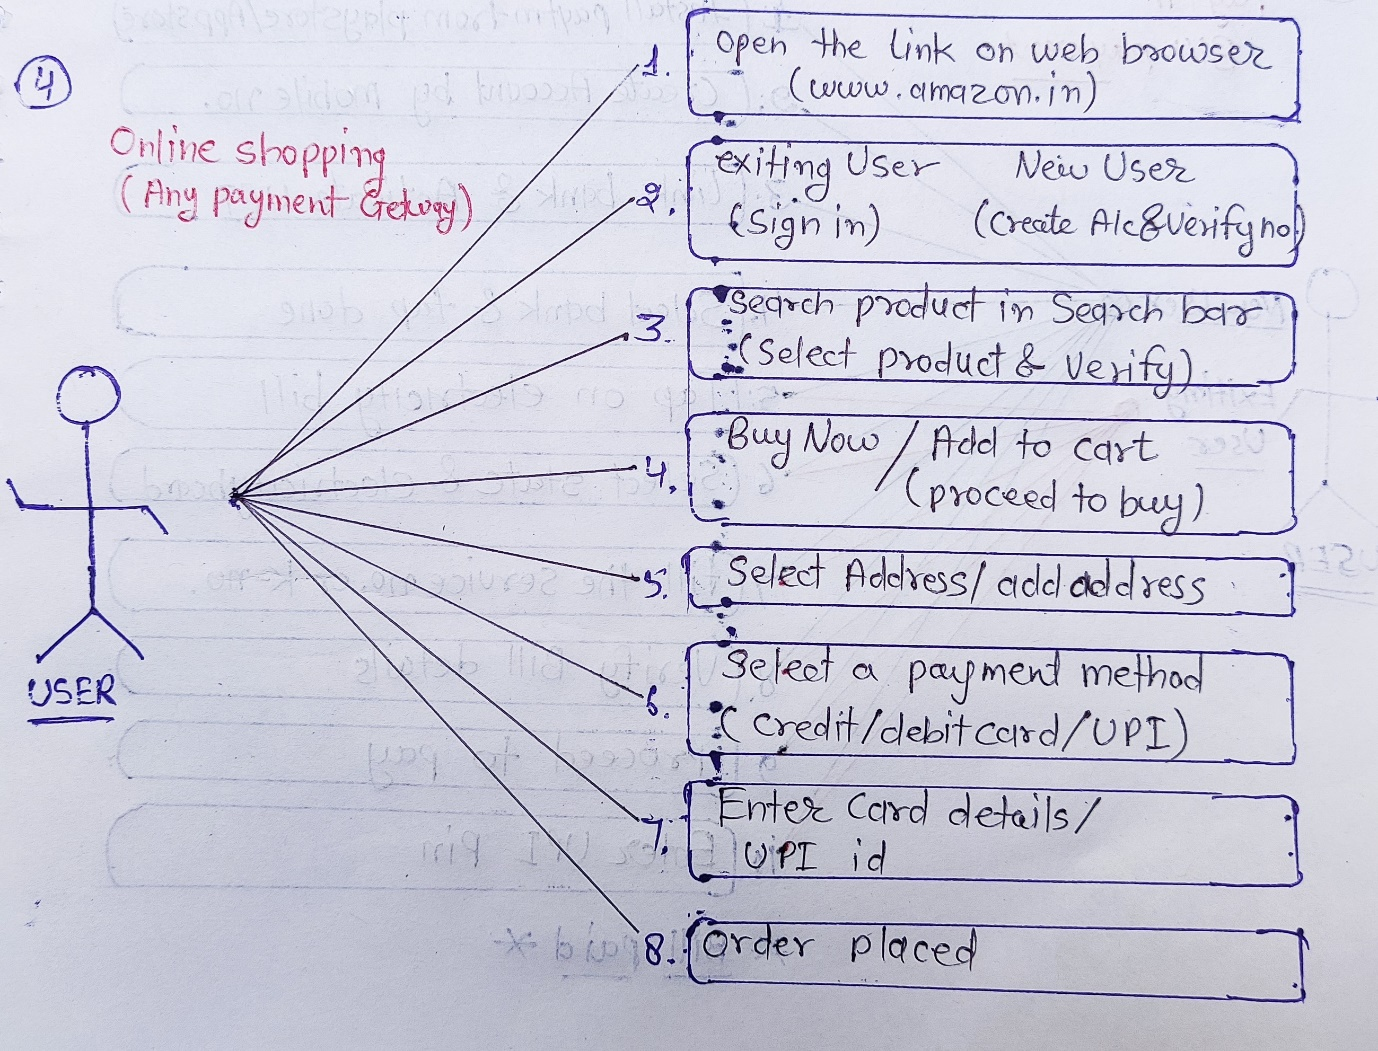 4
Online shopping
(Any payment Getway)
USER
1. Open the link on web browser
(www.amazon.in)
2. exiting User New User
(Sign in) (Create A/c & Verify no)
3. Search product in Search bar
(Select product & Verify)
4. Buy Now / Add to cart
(proceed to buy)
5. Select Address / add address
6. Select a payment method
(credit/debit card/UPI)
7. Enter Card details/
UPI id
8. Order placed